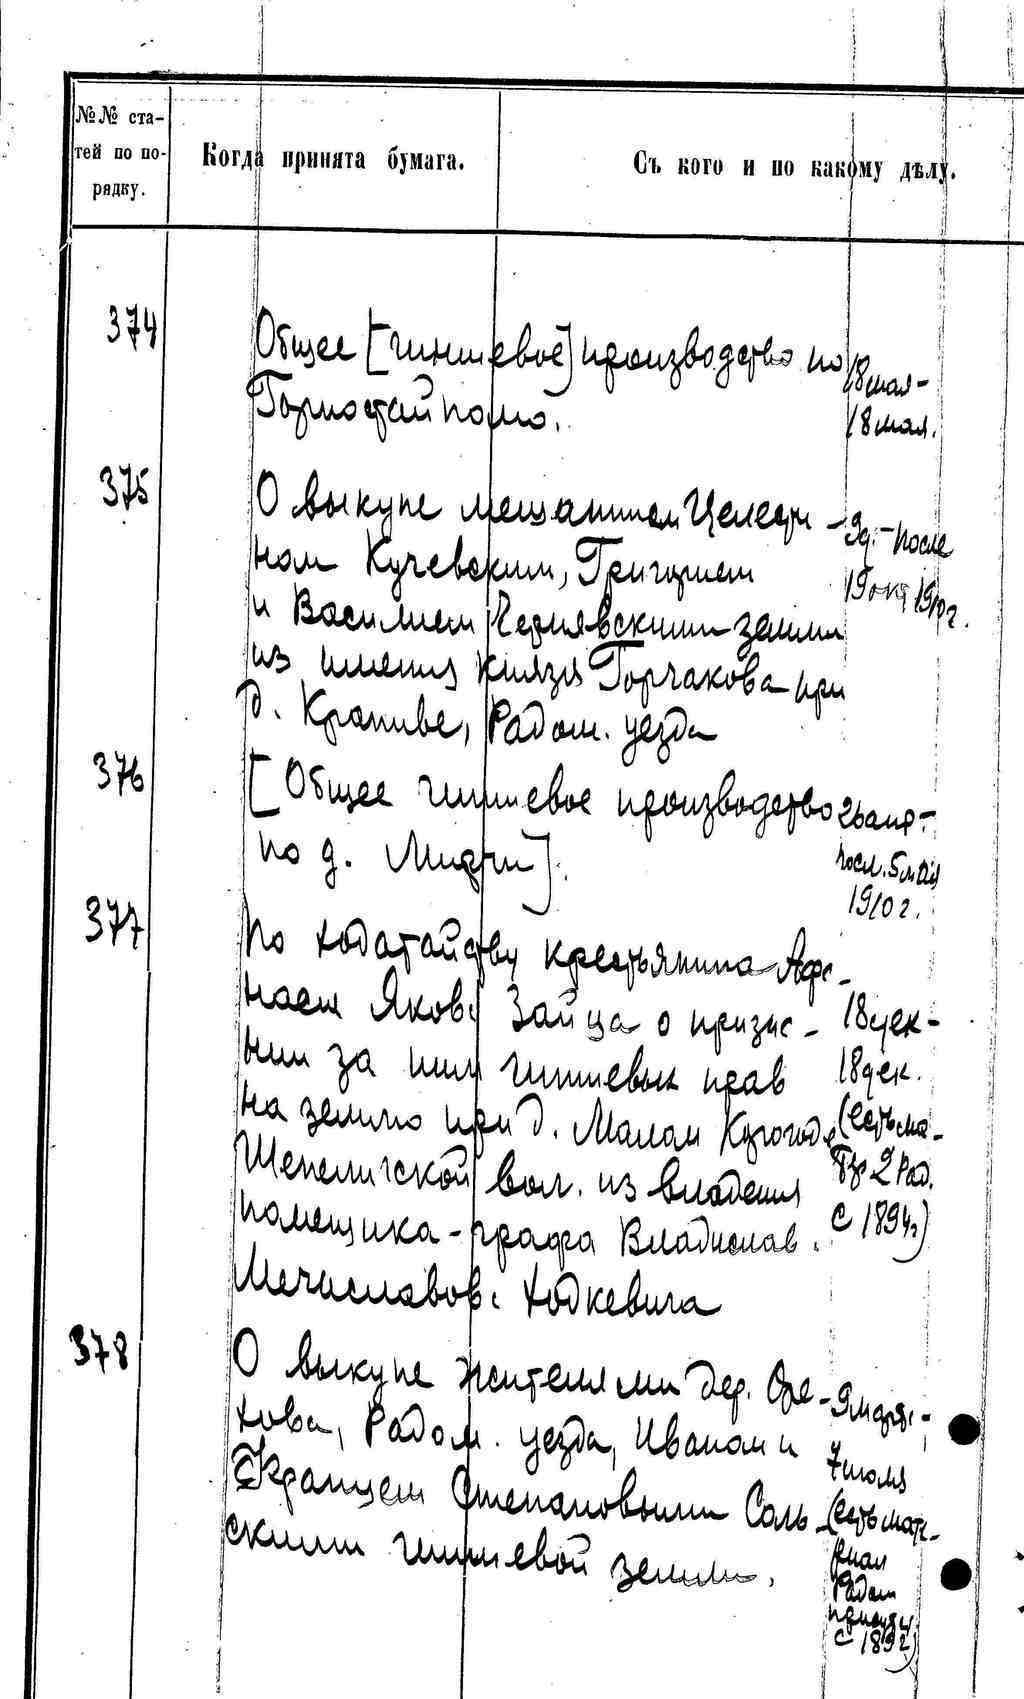 №№ ста-
тей по по-
рядку.
Когда принята бумага.
Съ кого и по какому дѣлу.
374
Общее [чиншевое] производство по
Горностайполю.
18 мая-
18 мая.
375
О выкупе мещанином Целести-
ном Кучевским, Григорием
и Василием Чернявскими земли
из имения князя Горчакова при
д. Крапиве, Радом. уезда
9 д.- после
19 окт 1910 г.
376
[Общее чиншевое производство
по д.
26 апр-
посл. 5 мая
1910 г.
377
По ходатайству крестьянина Афа-
насия Яков. Зайца о призна-
нии за ним чиншевых прав
на землю при д. Малом Корогоде
Шепеличской вол. из владения
помещика-графа Владислав.
Мечиславов. Ходкевича
18 дек-
18 дек.
(есть ма-
2 Рад.
с 1894 г)
378
О выкупе жителями дер. Оре-
хова, Радом. уезда, Иваном и
Францем Степановыми Соль-
скими чиншевой земли.
9 марта-
7 июля
(есть мате-
риал
Радом
с 1892)